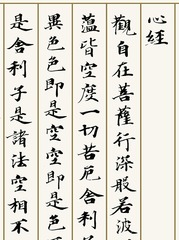 心經
觀自在菩薩行深般若波
蘊皆空度一切苦厄舍利
異色色即是空空即是色
是舍利子是諸法空相不